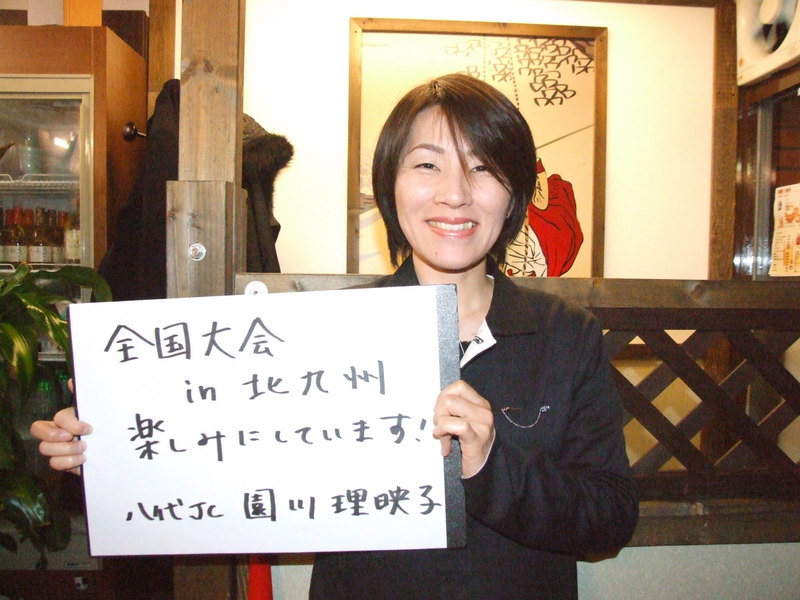 全国大会
in 北九州
楽しみにしています!
八代JC 園川理映子